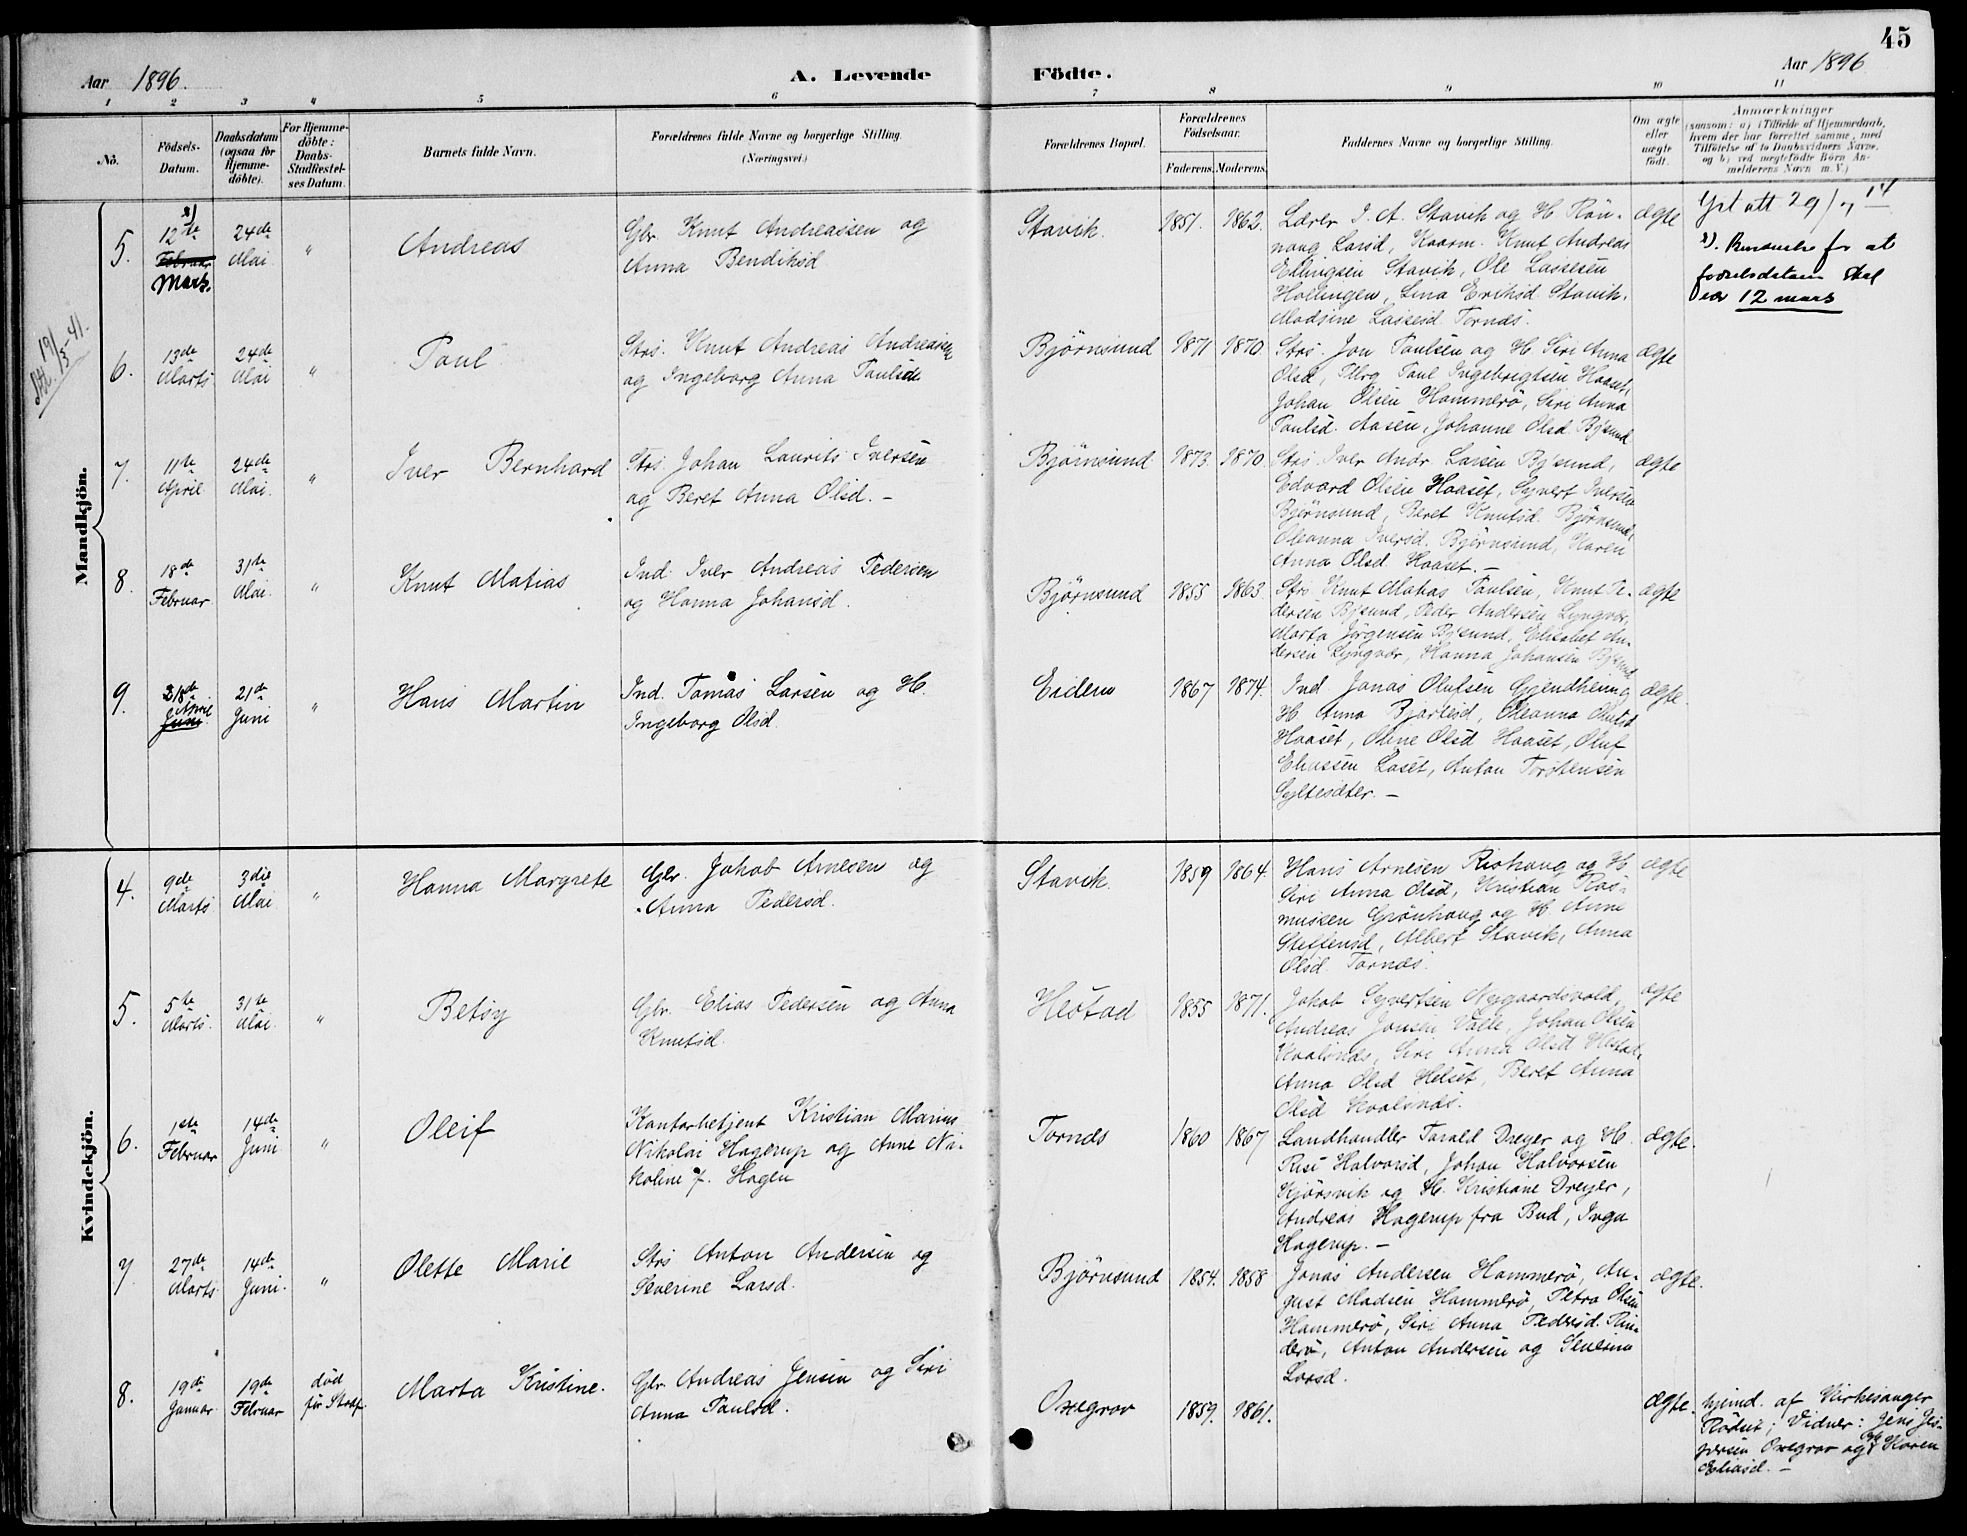 45
Aar 1896.
A. Levende
Födte.
Aar 1896
1 2 3 4 5 6 7 8 9 10 11
No.
Födsels-
Datum.
Daabsdatum
(ogsaa for
Hjemme-
döbte).
For Hjemme-
döbte:
Daabs-
Stadfæstel-
ses Datum.
Barnets fulde Navn.
Forældrenes fulde Navne og borgerlige Stilling.
(Næringsvei.)
Forældrenes Bopæl.
Forældrenes
Födselsaar.
Faderens. Moderens.
Faddernes Navne og borgerlige Stilling.
Om ægte
eller
uægte
födt.
Anmærkninger
(saasom: a) i Tilfælde af Hjemmedaab,
hvem der har forrettet samme, med
Tilföielse af to Daabsvidners Navne,
og b) ved uægtefödte Börn An-
melderens Navn m. V.)
Mandkjön.
5.
12te
Februar
Marts.
24de
Mai
"
Andreas
Gbr. Knut Andreassen og
Anna Bendiksd
Stavik.
1851. 1862.
Lærer I. A. Stavik og H. Rön-
naug Larsd, Kaarm. Knut Andreas
Ellingsen Stavik, Ole Lassesen
Hollingen, Lina Eriksd. Stavik.
Madsine Lassesd. Tornes.
ægte
fødselsdatum skal
være 12 mars
6.
13de
Marts
24de
Mai
"
Paul
Strs. Knut Andreas Andreasen
og Ingeborg Anna Paulsd
Björnsund
1871 1870.
Strs. Jon Paulsen og H. Siri Anna
Olsd, Paul Ingebrigtsen Haaset,
Johan Olsen Hammerö, Siri Anna
Paulsd. Aasen, Johanne Olsd Bj'sund
ægte
7.
11te
April
24de
Mai.
"
Iver Bernhard
Strs. Johan Laurits Iversen
og Beret Anna Olsd. -
Björnsund
1873. 1870.
Strs. Iver Andr. Larsen Bj'sund,
Edvard Olsen Haaset, Syvert Iversen
Björnsund, Beret Knutsd. Björnsund,
Oleanna Iversd. Björnsund, Karen
Anna Olsd. Haaset. -
ægte
8.
18de
Februar
31te
Mai.
"
Knut Matias
Ind. Iver Andreas Pedersen
og Hanna Johansd.
Björnsund
1855 1863.
Strs. Knut Matias Paulsen, Knut Pe-
dersen Bj'sund, Peder Andersen Lyngvær,
Marta Jörgensen Bj'sund, Elisabet An-
dersen Lyngvær, Hanna Johansen Bj'sund
ægte
9.
April
Juni
21de
Juni
"
Hans Martin
Ind. Tomas Larsen og H.
Ingeborg Olsd.
Eidem
1867 1874.
Ind. Jonas Olufsen Gjendheim og
H. Anna Bjartesd, Oleanna
Haaset, Oline Olsd Haaset, Oluf
Eliassen Laset, Anton Torstensen
Gyltesæter. -
ægte.
Kvindekjön.
4.
9de
Marts
3die
Mai
"
Hanna Margrete
Gbr. Jakob Arnesen og
Anna Pedersd.
Stavik.
1859 1864.
Hans Arnesen Rishaug og H.
Siri Anna Olsd, Kristian Ras-
mussen Grönhaug og H. Anne
Steffensd, Albert Stavik, Anna
Olsd. Tornes.
ægte
5.
5te
Marts.
31te
Mai.
"
Betsy
Gbr. Elias Pedersen og Anna
Knutsd.
Hestad
1855 1871.
Jakob Syvertsen Nygaardsvold,
Andreas Jonsen Valle, Johan Olsen
Kvalsnes, Siri Anna Olsd Hestad,
Anna Olsd Helset, Beret Anna
Olsd Kvalsnes.
ægte
6.
1ste
Februar
14de
Juni
"
Oleif
Kontorbetjent Kristian Marius
Nikolai Hagerup og Anne Ni-
koline f. Hagen
Tornes
1860 1867
Landhandler Tarald Dreyer og H.
Risi Halvorsd, Johan Halvorsen
Kjörsvik og H. Kristiane Dreyer,
Andreas Hagerup fra Bud, Inga
Hagerup. -
ægte.
7
27de
Marts
14de
Juni.
"
Olette Marie
Strs Anton Andersen og
Severine Larsd.
Björnsund
1854. 1858
Jonas Andersen Hammerö, Au-
gust Madsen Hammerö, Petra Olsen
Hammerö, Siri Anna Pedersd. Rin-
derö, Anton Andersen og Severine
Larsd.
ægte.
8.
19de
Januar
19de
Februar
död
før Stadf.
Marta Kristine.
Gbr. Andreas Jensen og Siri
Anna Paulsd.
Oxegrov
1859. 1861.
ægte.
hjemd. af Kirkesanger
Rödset; Vidner: Jens Jes-
persen Oxegrov og Karen
Eliasd. -